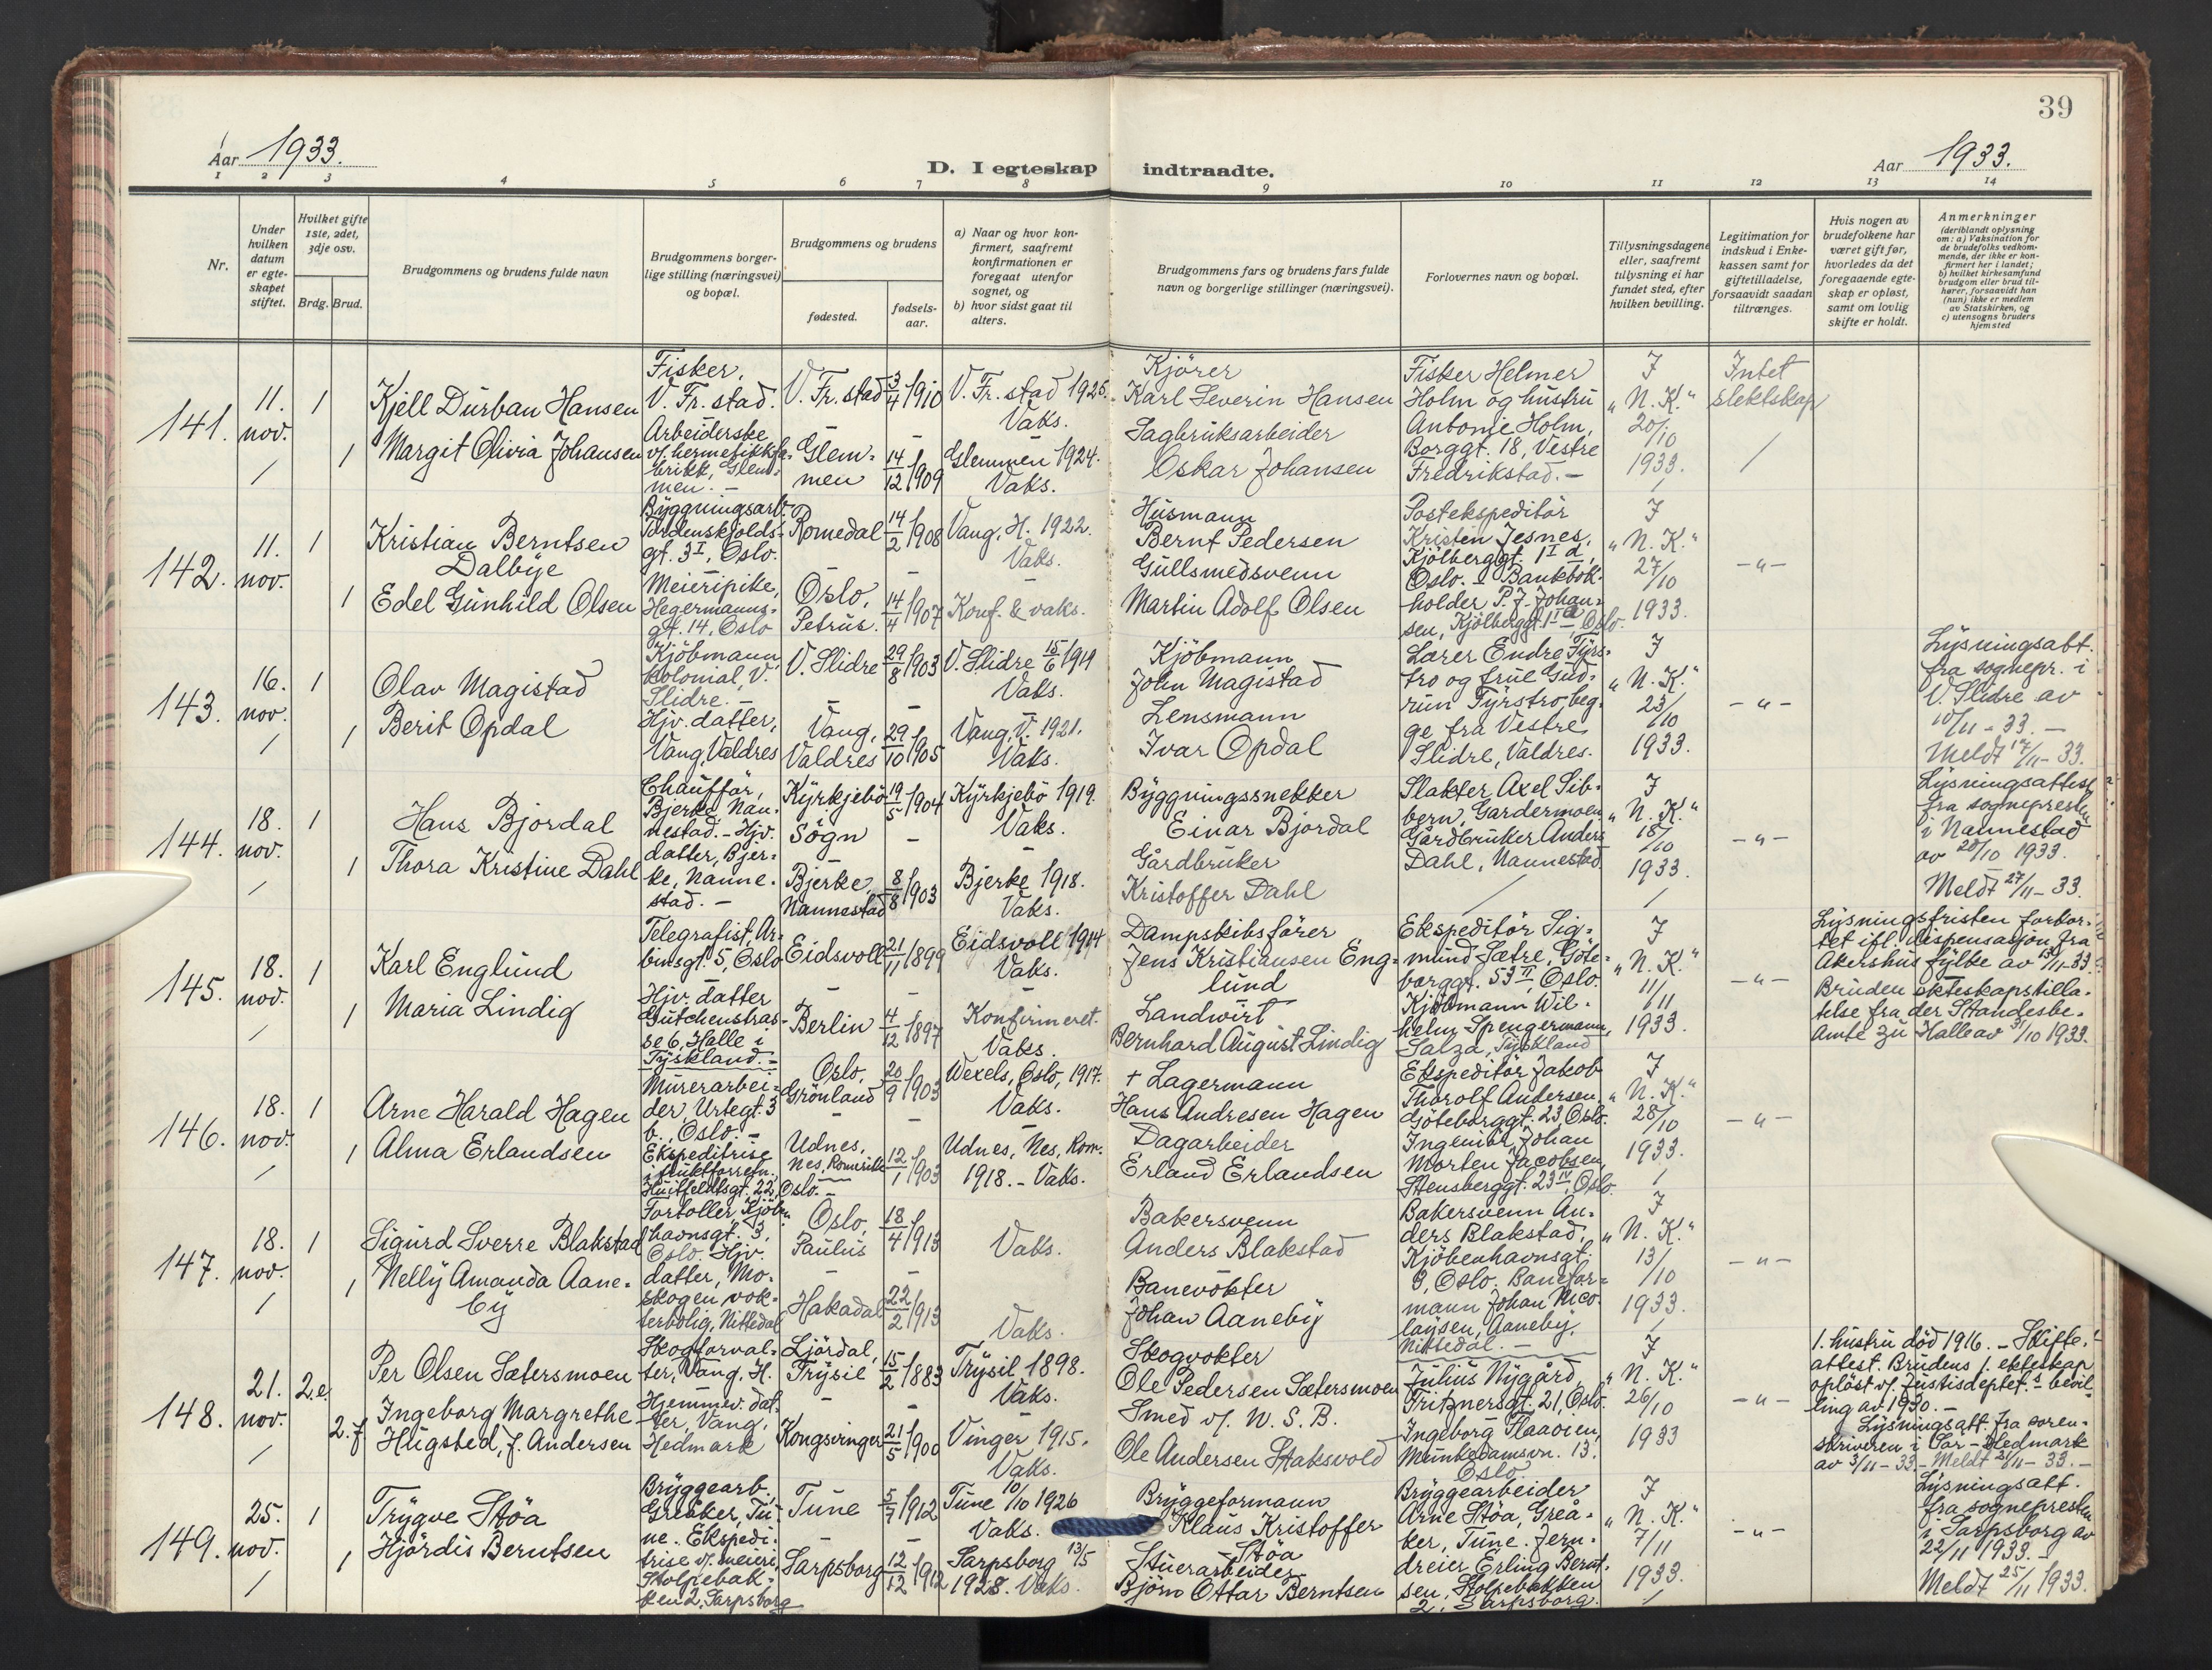 39
Aar 1933.
D. I egteskap indtraadte.
Aar 1933.
1 2 3 4 5 6 7 8 9 10 11 12 13 14
Nr.
Under hvilken datum er egteskapet stiftet.
Hvilket gifte 1ste, 2det, 3dje osv.
Brdg. Brud.
Brudgommens og brudens fulde navn
Brudgommens borgerlige stilling (næringsvei) og bopæl.
Brudgommens og brudens
fødested.
fødselsaar.
a) Naar og hvor konfirmert, saafremt konfirmationen er foregaat utenfor sognet, og
b) hvor sidst gaat til alters.
Brudgommens fars og brudens fars fulde navn og borgerlige stillinger (næringsvei).
Forlovernes navn og bopæl.
Tillysningsdagene eller, saafremt tillysning ei har fundet sted, efter hvilken bevilling.
Legitimation for indskud i Enkekassen samt for giftetilladelse, forsaavidt saadan tiltrænges.
Hvis nogen av brudefolkene har været gift før, hvorledes da det foregaaende egteskap er opløst, samt om lovlig skifte er holdt.
Anmerkninger (deriblandt oplysning om: a) Vaksination for de brudefolks vedkommende, der ikke er konfirmert her i landet; b) hvilket kirkesamfund brudgom eller brud tilhører, forsaavidt han (hun) ikke er medlem av Statskirken, og c) utensogns bruders hjemsted
141.
11. nov.
1
Kjell Durban Hansen
Fisker, V. Fr. stad.
V. Fr. stad 3/4 1910
V. Fr. stad 1925. Vaks.
Kjörer
Karl Severin Hansen
1
Margit Olivia Johansen
Arbeiderske v/ hermetikkfabrikk, Glemmen. –
Glemmen 14/12 1909
Glemmen 1924. Vaks.
Sagbruksarbeider
Oskar Johansen
Fisker Helmer
Holm og hustru
Antonie Holm,
Borggt. 18, Vestre
Fredrikstad. –
I „N. K." 20/10 1933.
Intet slektskap
142.
11. nov.
1
Kristian Berntsen
Dalbye
Byggningsarb. Tordenskjoldsgt. 3 I, Oslo.
Romedal 14/2 1908
Vang, H. 1922. Vaks.
Husmann
Bernt Pedersen
1
Edel Gunhild Olsen
Meieripike, Hegermannsgt. 14, Oslo
Oslo, Petrus. 14/4 1907
Konf. & vaks.
Gullsmedsvenn
Martin Adolf Olsen
Postekspeditör
Kristen Jesnes,
Kjölberggt. 1 I d,
Oslo. – Bankbok-
holder P. J. Johan-
sen, Kjölberggt. 1 II d, Oslo.
I „N. K." 27/10 1933.
– „ –
143.
16. nov.
1
Olav Magistad
Kjöbmann, kolonial, V. Slidre. –
V. Slidre 29/8 1903
V. Slidre 15/6 1919 Vaks.
Kjöbmann
John Magistad
1
Berit Opdal
Hjv. datter, Vang, Valdres
Vang, Valdres 29/10 1905
Vang, V. 1921. Vaks.
Lensmann
Ivar Opdal
Lærer Endre Fyrs-
tro og frue Gud-
run Fyrstro, beg-
ge fra Vestre
Slidre, Valdres.
I „N. K." 23/10 1933.
– „ –
Lysningsatt.
fra sognepr. i
V. Slidre av
10/11 – 33. –
Meldt 17/11 – 33.
144.
18. nov.
1
Hans Bjordal
Chaufför, Bjerke, Nannestad. –
Kyrkjebö Sogn 19/5 1904
Kyrkjebö 1919. Vaks.
Byggningssnekker
Einar Bjordal
1
Thora Kristine Dahl
Hjv. datter, Bjerke, Nannestad. –
Bjerke, Nannestad 8/8 1903
Bjerke 1918. Vaks.
Gårdbruker
Kristoffer Dahl
Slakter Axel Sib-
bern, Gardermoen,
Gårdbruker Anders
Dahl, Nannestad.
I „N. K." 18/10 1933.
– „ –
Lysningsattest
fra sognepresten
i Nannestad
av 28/10 1933.
Meldt 27/11 – 33.
145.
18. nov.
1
Karl Englund
Telegrafist, Arbinsgt. 5, Oslo
Eidsvoll 21/11 1899
Eidsvoll 1914 Vaks.
Dampskibsfører
Jens Kristiansen Englund
1
Maria Lindig
Hjv. datter Gütchenstrasse 6, Halle i Tyskland. –
Berlin 4/12 1897
Konfirmeret. Vaks.
Landwirt
Bernhard August Lindig
Ekspeditör Sig-
mund Sætre, Göte-
borggt. 53 II, Oslo.
Kjöbmann Wil-
helm Spengermann,
Salza, Tyskland
I „N. K." 11/11 1933.
– „ –
Lysningsfristen forkor-
tet ifl. dispensasjon fra
Akershus fylke av 15/11 – 33.
Bruden ekteskapstilla-
telse fra der Standesbe-
amte zu Halle av 31/10 1933.
146.
18. nov.
1
Arne Harald Hagen
Murerarbeider, Urtegt. 3 b., Oslo. –
Oslo, Grönland 20/9 1903
Wexels, Oslo, 1917. Vaks.
+ Lagermann
Hans Andresen Hagen
1
Alma Erlandsen
Ekspeditrise i fruktforretn. Huitfeldtsgt. 22, Oslo. –
Udnes, Nes, Romerike 12/1 1903
Udnes, Nes, Rom. 1918. – Vaks.
Dagarbeider
Erland Erlandsen
Ekspeditör Jakob
Thorolf Andersen,
Göteborggt. 23, Oslo.
Ingeniör Johan
Morten Jacobsen,
Stensberggt. 23 IV, Oslo.
I „N. K." 28/10 1933.
– „ –
147.
18. nov.
1
Sigurd Sverre Blakstad
Fortoller, Kjöbenhavnsgt. 3, Oslo.
Oslo, Paulus 18/4 1913
Vaks.
Bakersvenn
Anders Blakstad
1
Nelly Amanda Aaneby
Hjv. datter, Moskogen vokterbolig, Nittedal
Hakadal 22/2 1913
Vaks.
Banevokter
Johan Aaneby
Bakersvenn An-
ders Blakstad,
Kjöbenhavnsgt.
3, Oslo. Banefor-
mann Johan Nico-
laysen, Aaneby,
Nittedal. –
I „N. K." 13/10 1933.
– „ –
148.
21. nov.
2.e.
Per Olsen Sætersmoen
Skogforvalter, Vang, H.
Ljördal, Trysil 15/2 1883
Trysil 1898. Vaks.
Skogvokter
Ole Pedersen Sætersmoen
2.f.
Ingeborg Margrethe
Hugsted, f. Andersen
Hjemmev. datter, Vang, Hedmark
Kongsvinger 21/5 1900
Vinger 1915. Vaks.
Smed v/. N. S. B.
Ole Andersen Staksvold
Julius Nygård,
Fritznersgt. 21, Oslo.
Ingeborg Flaaoien,
Munkedamsvn. 13,
Oslo
I „N. K." 26/10 1933
– „ –
1. hustru död 1916. – Skifte-
attest. Brudens 1. ekteskap
oplöst v/. Justisdeptet.s bevil-
ling av 1930. –
Lysningsatt. fra soren-
skriveren i Sör-Hedmark
av 3/11 – 33. – Meldt 21/11 – 33. –
149.
25. nov.
1
Trygve Stöa
Bryggearb., Greåker, Tune.
Tune 5/7 1912
Tune 10/10 1926 Vaks.
Bryggeformann
Klaus Kristoffer Stöa
1
Hjördis Berntsen
Ekspeditrise v/. meieri, Stolpebakken 2, Sarpsborg
Sarpsborg 12/12 1912
Sarpsborg 13/5 1928. Vaks.
Stuerarbeider
Björn Ottar Berntsen
Bryggearbeider
Arne Stöa, Greå-
ker, Tune. Jern-
dreier Erling Bernt-
sen, Stolpebakken
2, Sarpsborg.
I „N. K." 7/11 1933.
– „ –
Lysningsatt.
fra sognepresten
i Sarpsborg av
22/11 1933. –
Meldt 25/11 1933.